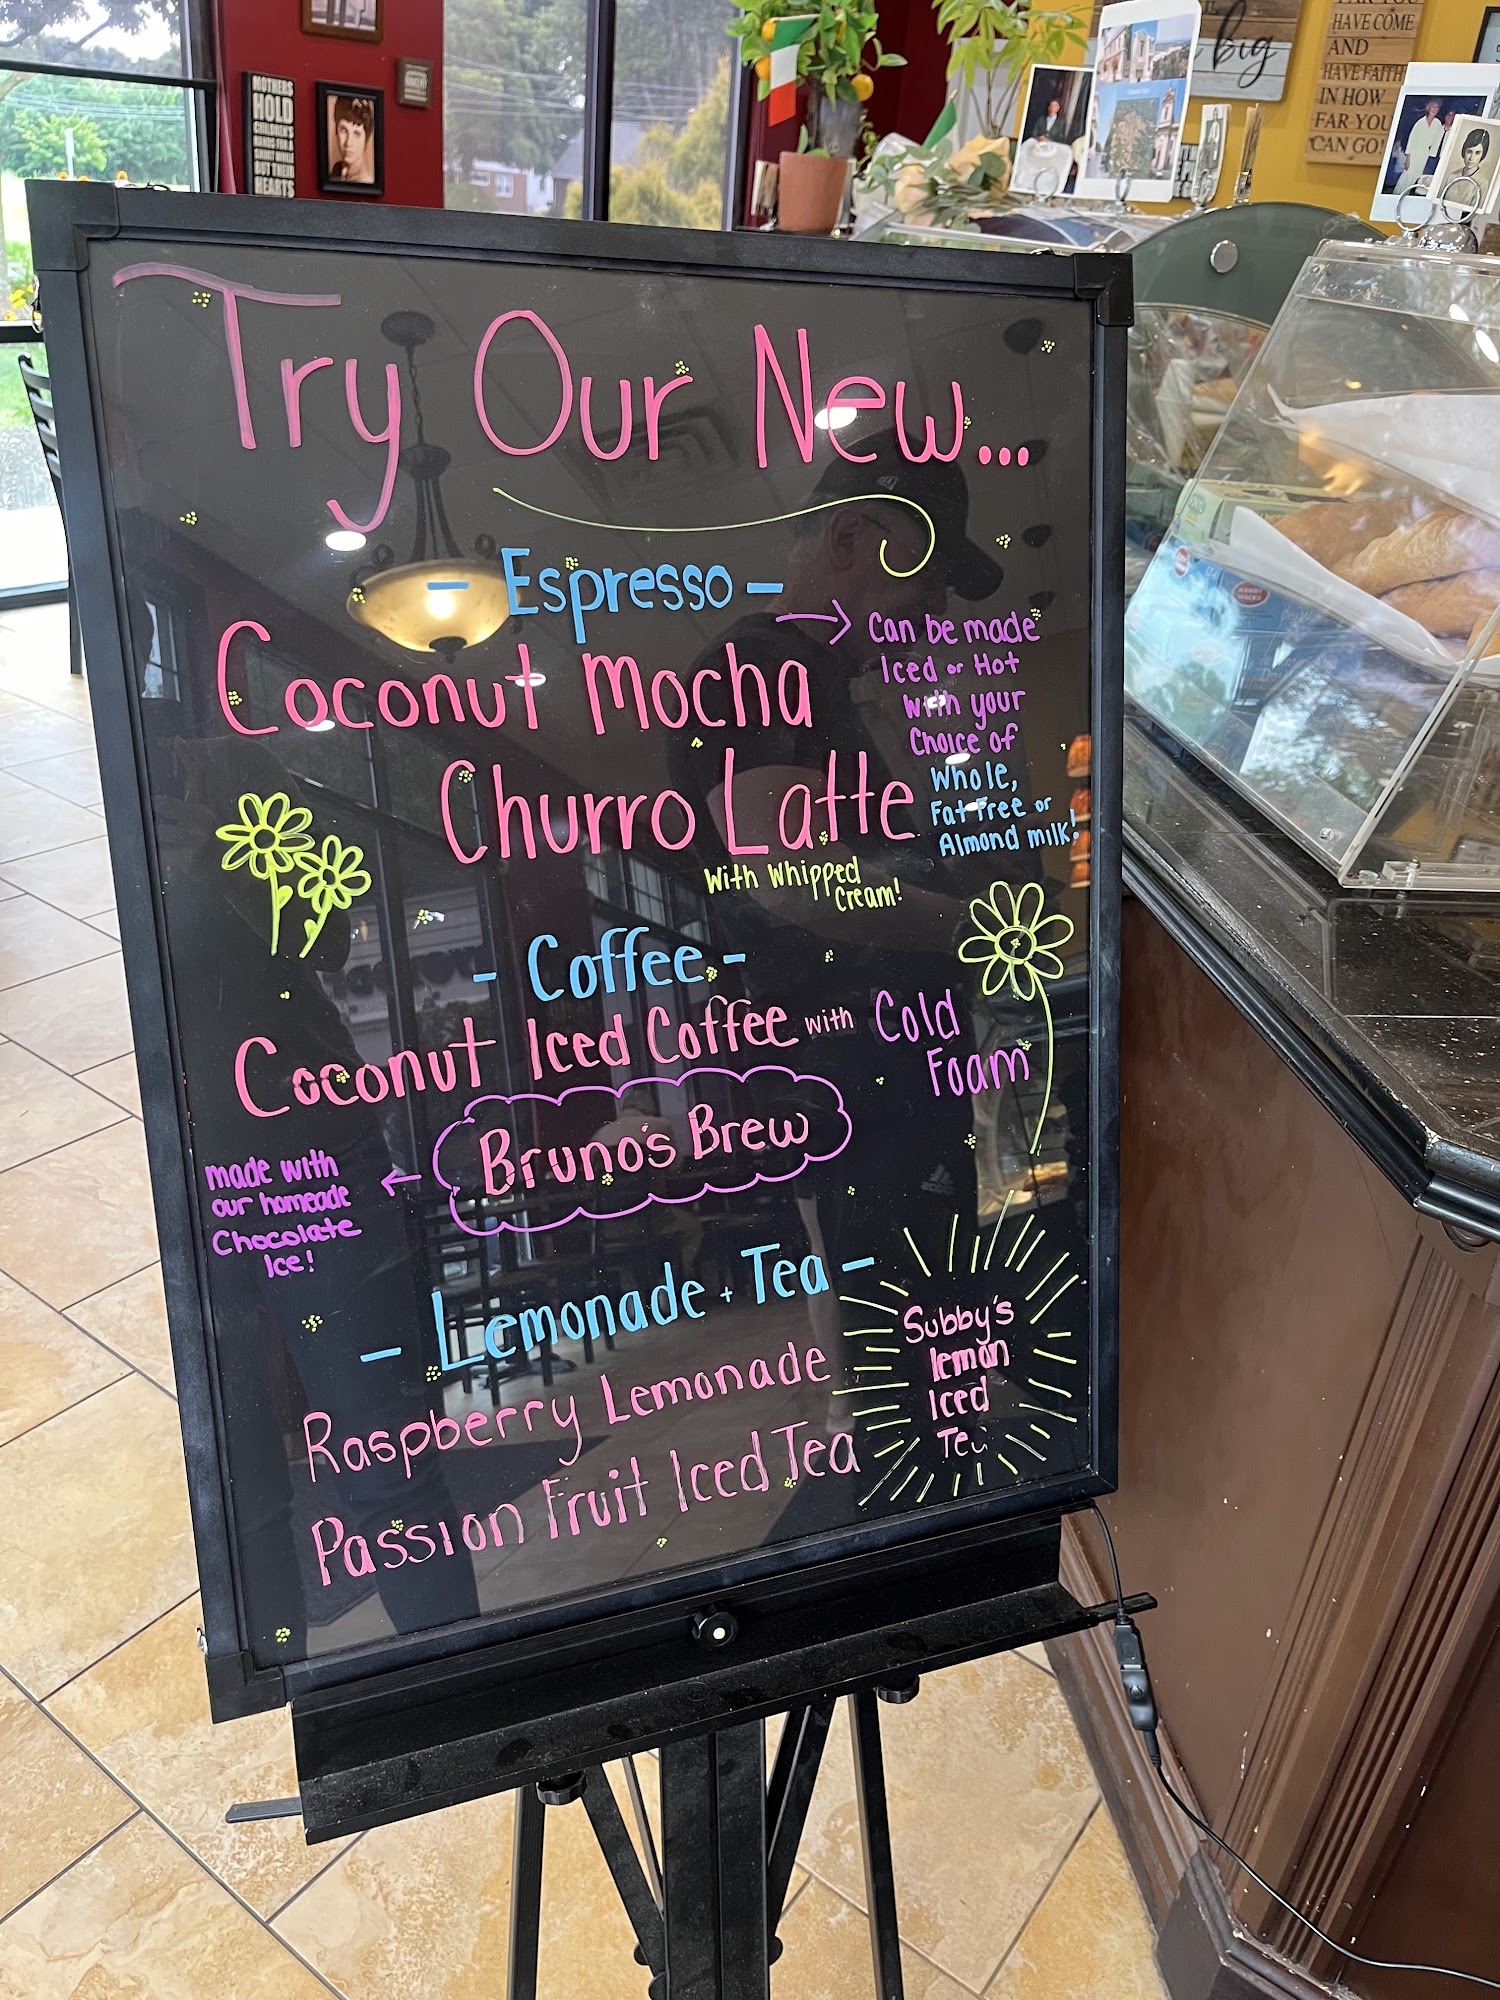 MOTHERS
HOLD
CHILDREN'S
HANDS FOR A
SHORT WHILE
BUT THEIR
HEARTS
big
FAR YOU
HAVE COME
AND
HAVE FAITH
IN HOW
FAR YOU
CAN GO!
Try Our New...
- Espresso -
Coconut Mocha
Churro Latte
With Whipped
Cream!
Can be made
Iced or Hot
With your
Choice of
Whole,
Fat Free or
Almond milk!
- Coffee -
Coconut Iced Coffee with Cold
Foam
Bruno's Brew
made with
our homeade
Chocolate
Ice!
- Lemonade + Tea -
Raspberry Lemonade
Passion Fruit Iced Tea
Subby's
lemon
Iced
Tea